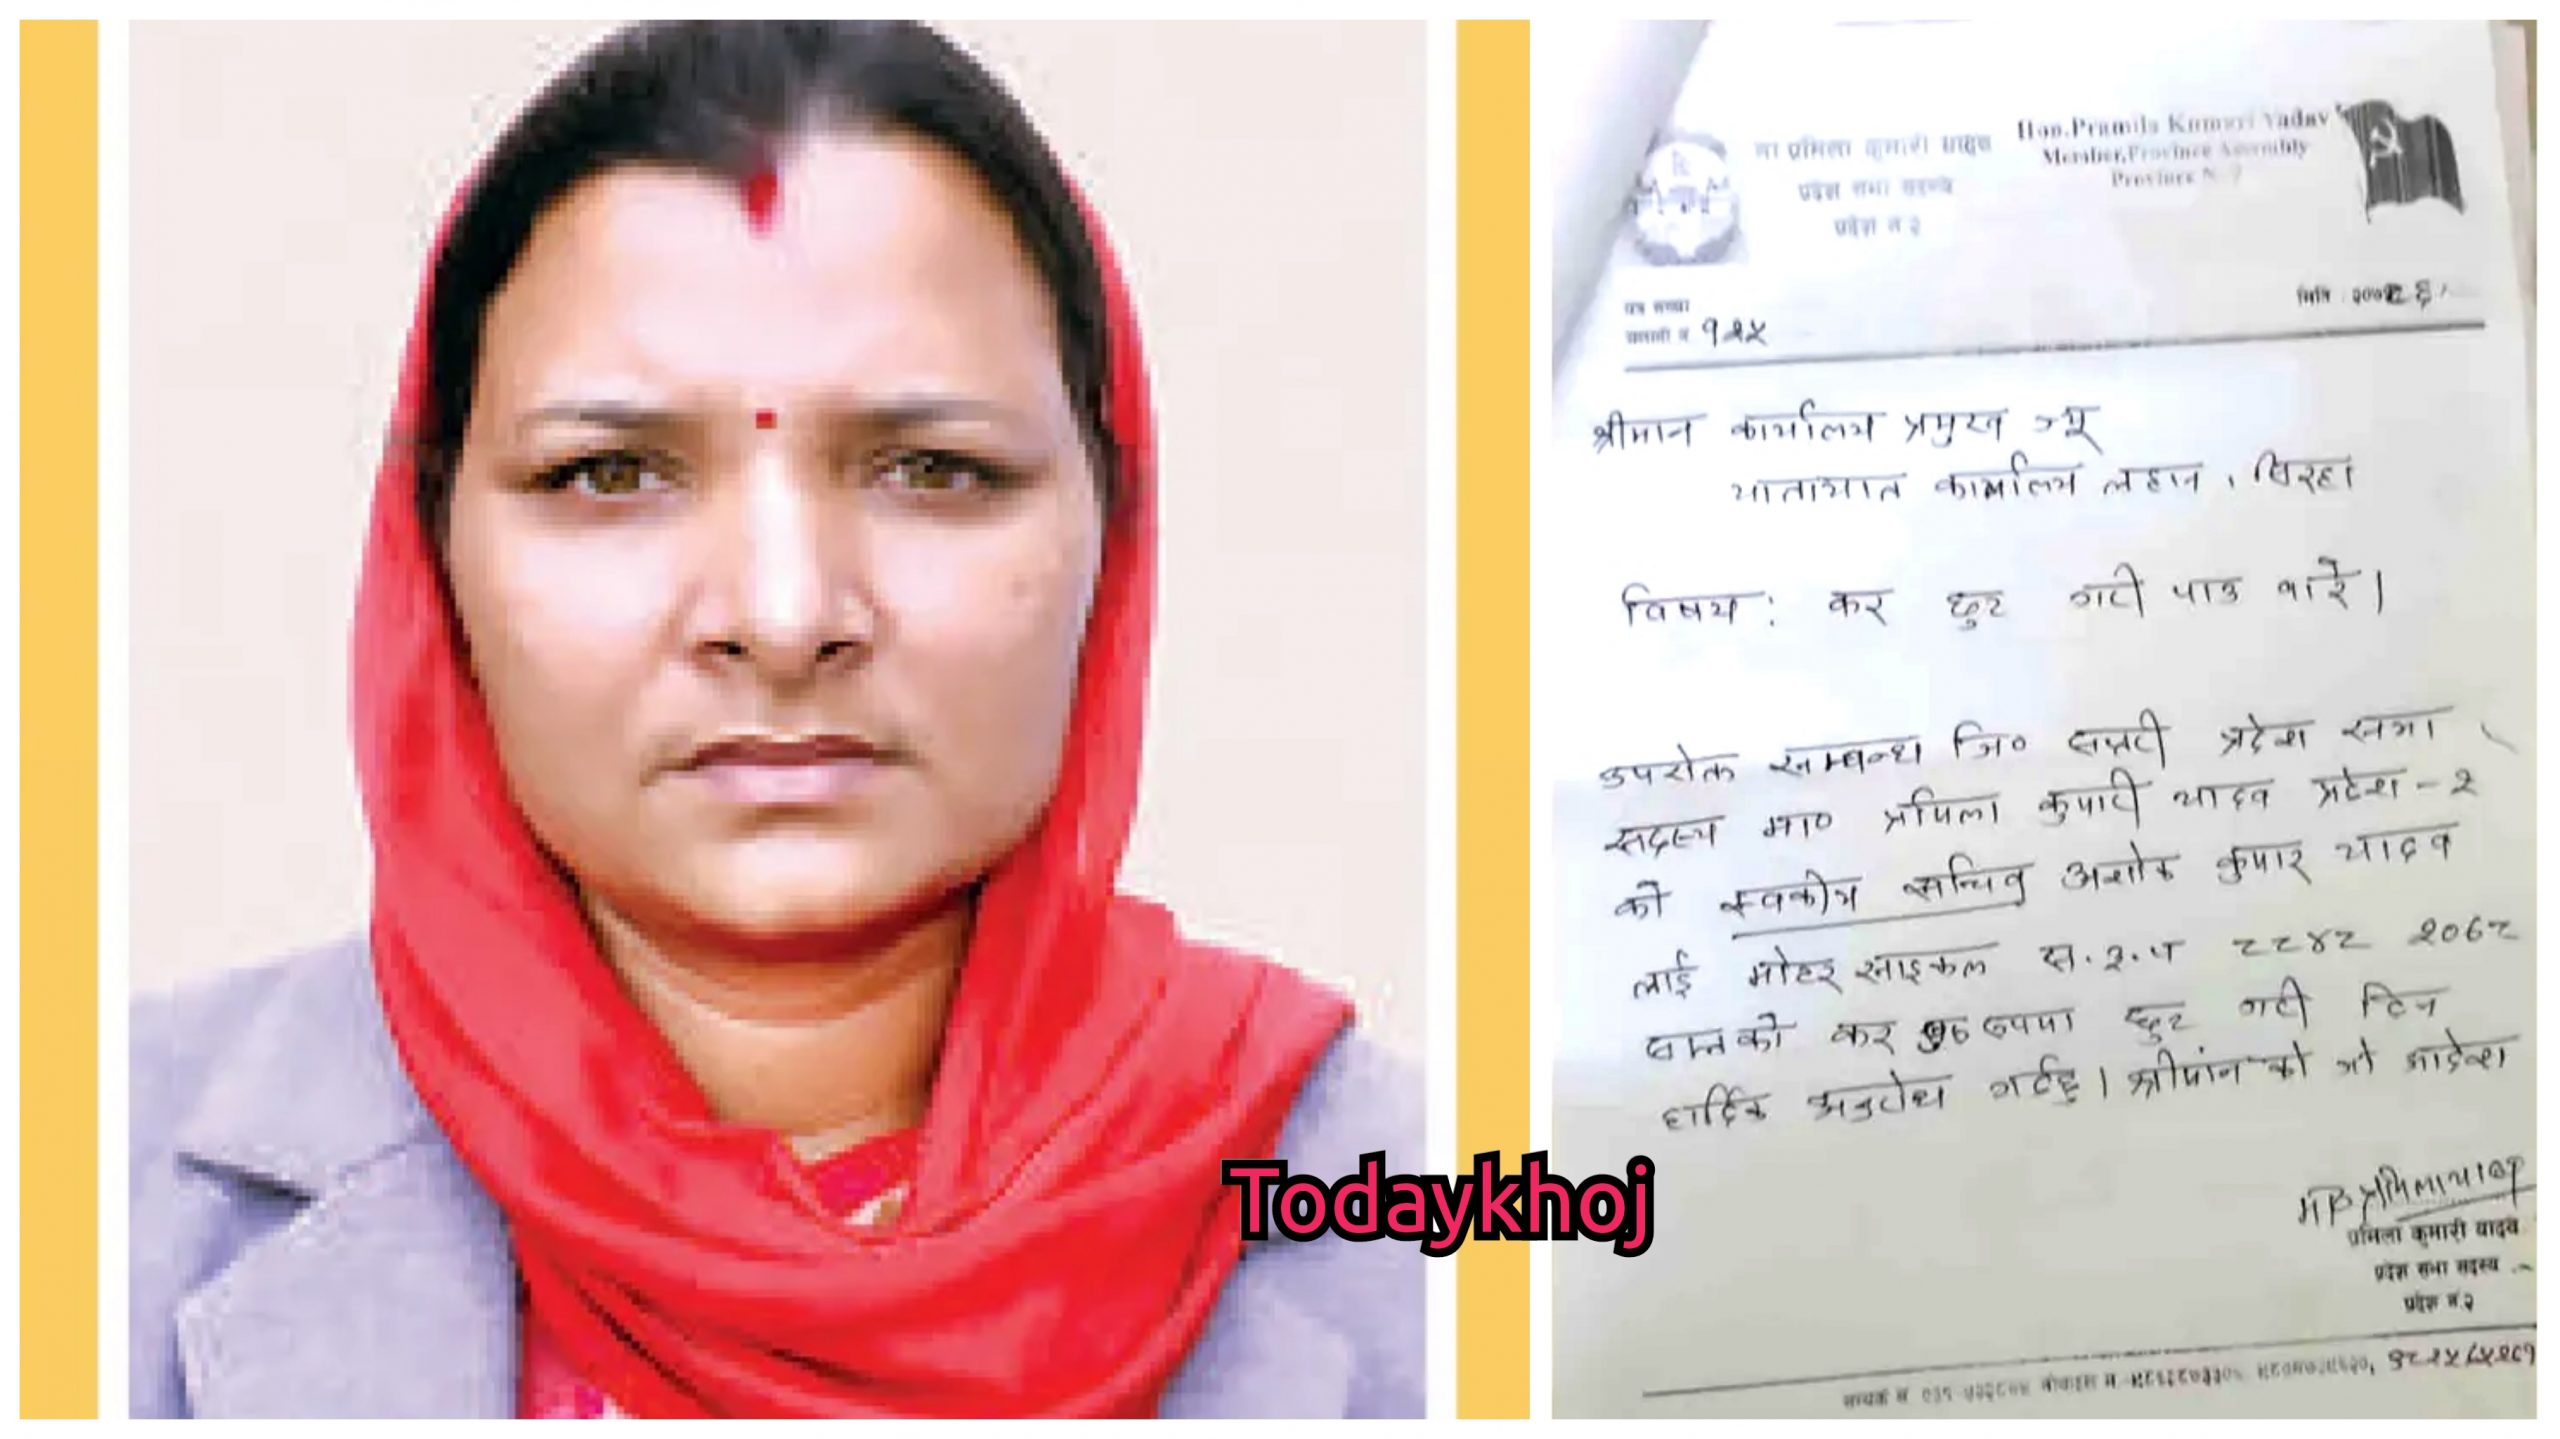 मा प्रमिला कुमारी यादव
प्रदेश सभा सदस्य
प्रदेश नं २
Hon.Pramila Kumari Yadav
Member,Province Assembly
Province N. 2
पत्र संख्या
चलानी नं १२५
मिति : २०७
श्रीमान कार्यालय प्रमुख ज्यू
यातायात कार्यालय लहान , सिरहा
विषय : कर छुट गरी पाउ बारे ।
उपरोक्त सम्बन्ध जि० सप्तरी प्रदेश सभा
सदस्य मा० प्रमिला कुमारी यादव प्रदेश - २
को स्वकीय सचिव अशोक कुमार यादव
लाई मोटर साइकल स. २. प ८८४८
सम्मको कर रुपया छुट गरी दिन
हार्दिक अनुरोध गर्दछु । श्रीमानको जो आदेश
प्रमिला यादव
प्रमिला कुमारी यादव
प्रदेश सभा सदस्य
प्रदेश नं.२
Todaykhoj